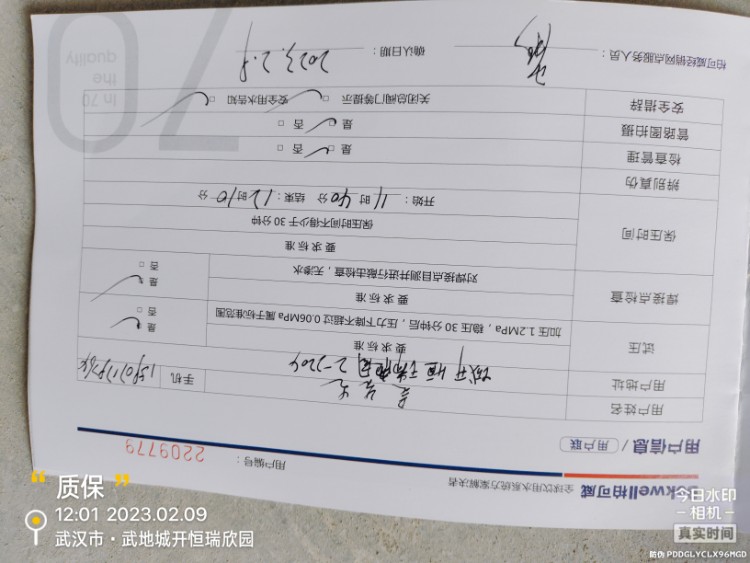 Bokwell柏可威 全球饮用水系统方案解决者
用户编号： 2209779
用户信息 / 用户联
用户姓名
用户地址 城开恒 2-2204 手机
试压 要求标准
加压1.2MPa，稳压30分钟后，压力下降不超过0.06MPa属于标准范围 是 否
焊接点检查 要求标准
对焊接点目测并进行敲击检查，无渗水 是 否
保压时间 要求标准
保压时间不得少于30分钟
开始： 11 时 40 分 结束： 12 时 10 分
辨别真伪
检查管理 是 否
管路图拍摄 是 否
安全措辞 关闭总阀门等提示 安全用水告知
柏可威经销网点服务人员： 确认日期： 2023.2.9
70
In 70
the
quality
“质保”
12:01 2023.02.09
武汉市·武地城开恒瑞欣园
今日水印
相机
真实时间
防伪 PDDGLYCLX96MGD